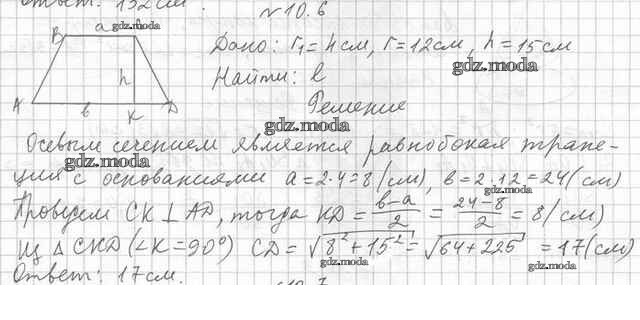 Ответ: 132 см.
№10.6
B a gdz.moda
Дано: r₁ = 4 см, r = 12 см, h = 15 см
gdz.moda
h
Найти: l
A в K D
Решение
gdz.moda
Осевым сечением является равнобокая трапе-
gdz.moda
ция с основаниями a = 2·4 = 8 (см), в = 2·12 = 24 (см)
gdz.moda
Проведем CK ⊥ AD, тогда KD = (в-a)/2 = (24-8)/2 = 8 (см)
Из Δ CKD (∠K = 90°) CD = √(8² + 15²) = √(64 + 225) = 17 (см)
gdz.moda gdz.moda
Ответ: 17 см.